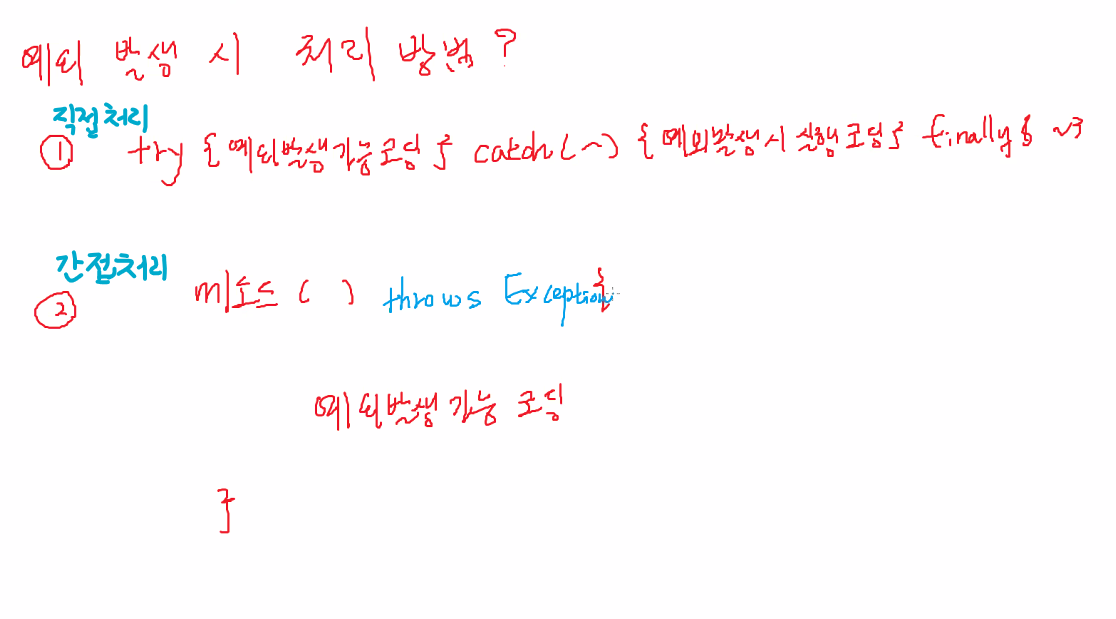 예외 발생 시 처리 방법?
직접처리
① try { 예외발생가능코딩 } catch(~) { 예외발생시 실행코딩 } finally { ~}
간접처리
② 메소드 ( ) throws Exception {
예외발생가능 코딩
}